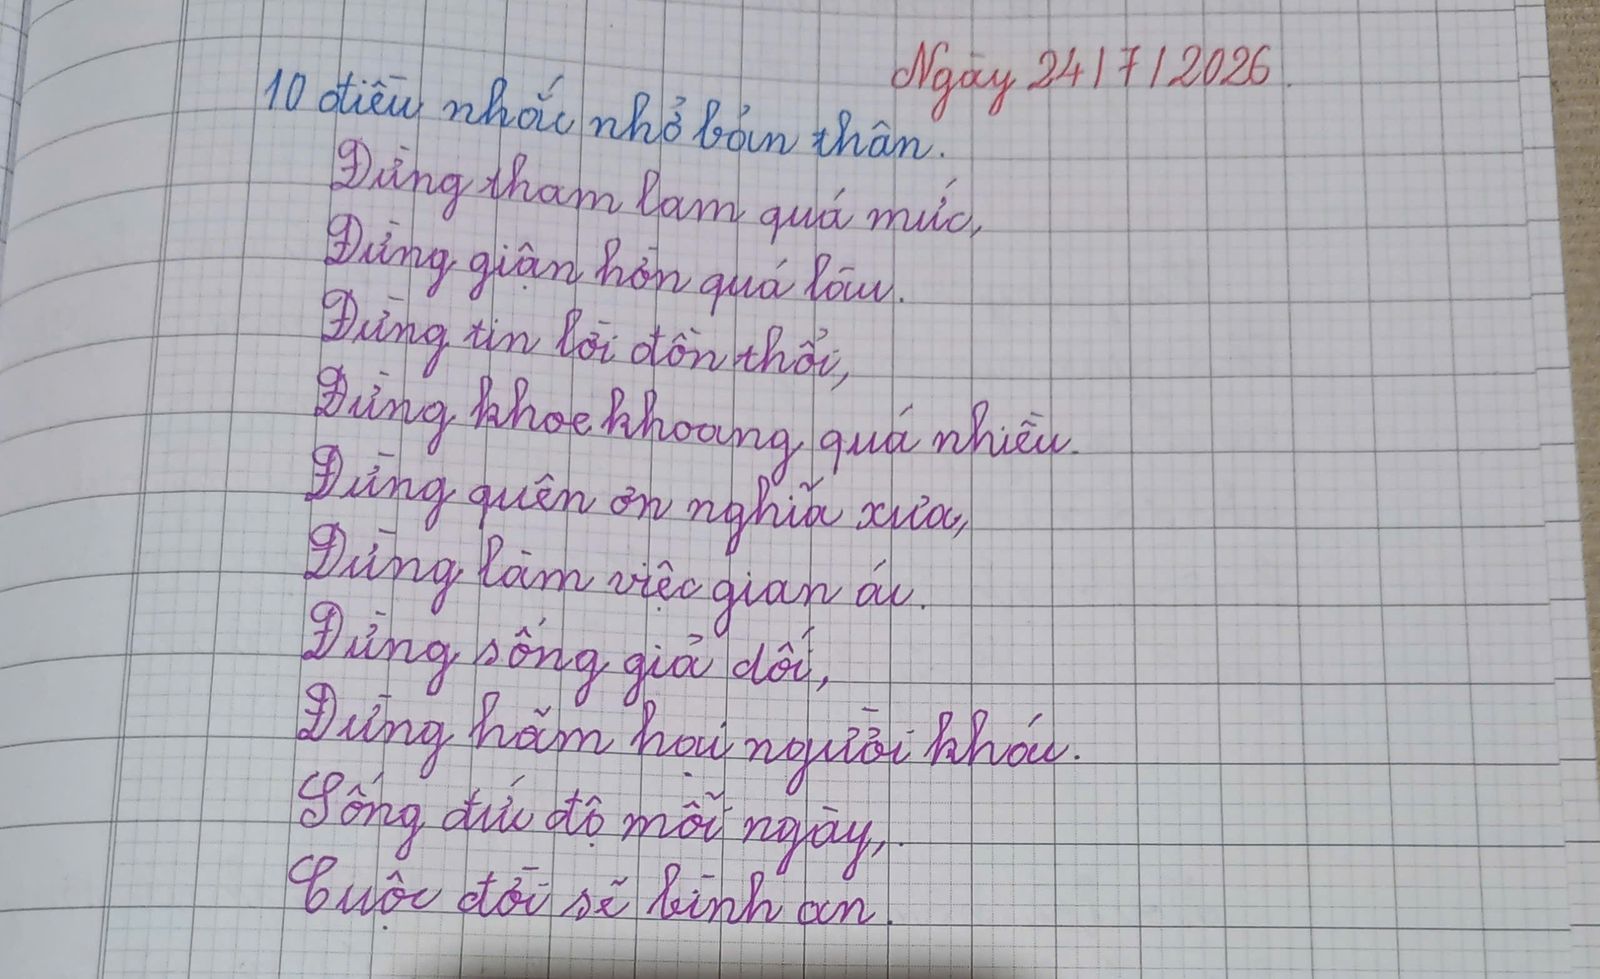 Ngày 24/7/2026.
10 điều nhắc nhở bản thân.
Đừng tham lam quá mức,
Đừng giận hờn quá lâu.
Đừng tin lời đồn thổi,
Đừng khoe khoang quá nhiều.
Đừng quên ơn nghĩa xưa,
Đừng làm việc gian ác.
Đừng sống giả dối,
Đừng hãm hại người khác.
Sống đức độ mỗi ngày,
Cuộc đời sẽ bình an.